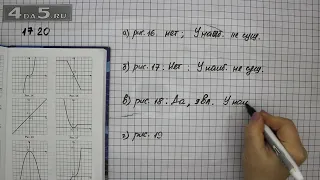 4DA5.RU
17 20
а) рис. 16. Нет; У наиб. не сущ.
б) рис. 17. Нет; У наиб. не сущ.
в) рис. 18. Да, явл. У наи
г) рис. 19